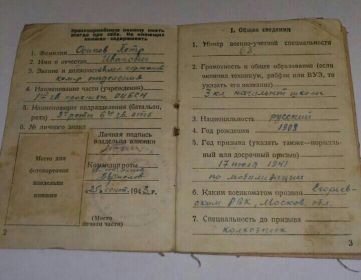 Красноармейскую книжку иметь
всегда при себе. Не имеющих
книжек — задерживать.
1. Фамилия Осипов Петр
2. Имя и отчество Иванович
3. Звание и должность сержант
ком-р отделения
4. Наименование части (учреждения)
5. Наименование подразделения (батальон,
рота)
6. № личного знака
Личная подпись
владельца книжки
Место для
фотокарточки
владельца
книжки
Командир роты
25 сент. 1943 г.
(Место
печати части)
2
I. Общие сведения
1. Номер военно-учетной специальности
2. Грамотность и общее образование (если
окончил техникум, рабфак или ВУЗ, то
указать его название)
3 кл. начальной школы
3. Национальность русский
4. Год рождения 1908
5. Год призыва (указать также—нормаль-
ный или досрочный призыв)
17 июля 1941
по мобилизации
6. Каким военкоматом призван Егорьев-
ским РВК, Москов. обл.
7. Специальность до призыва
колхозник
3